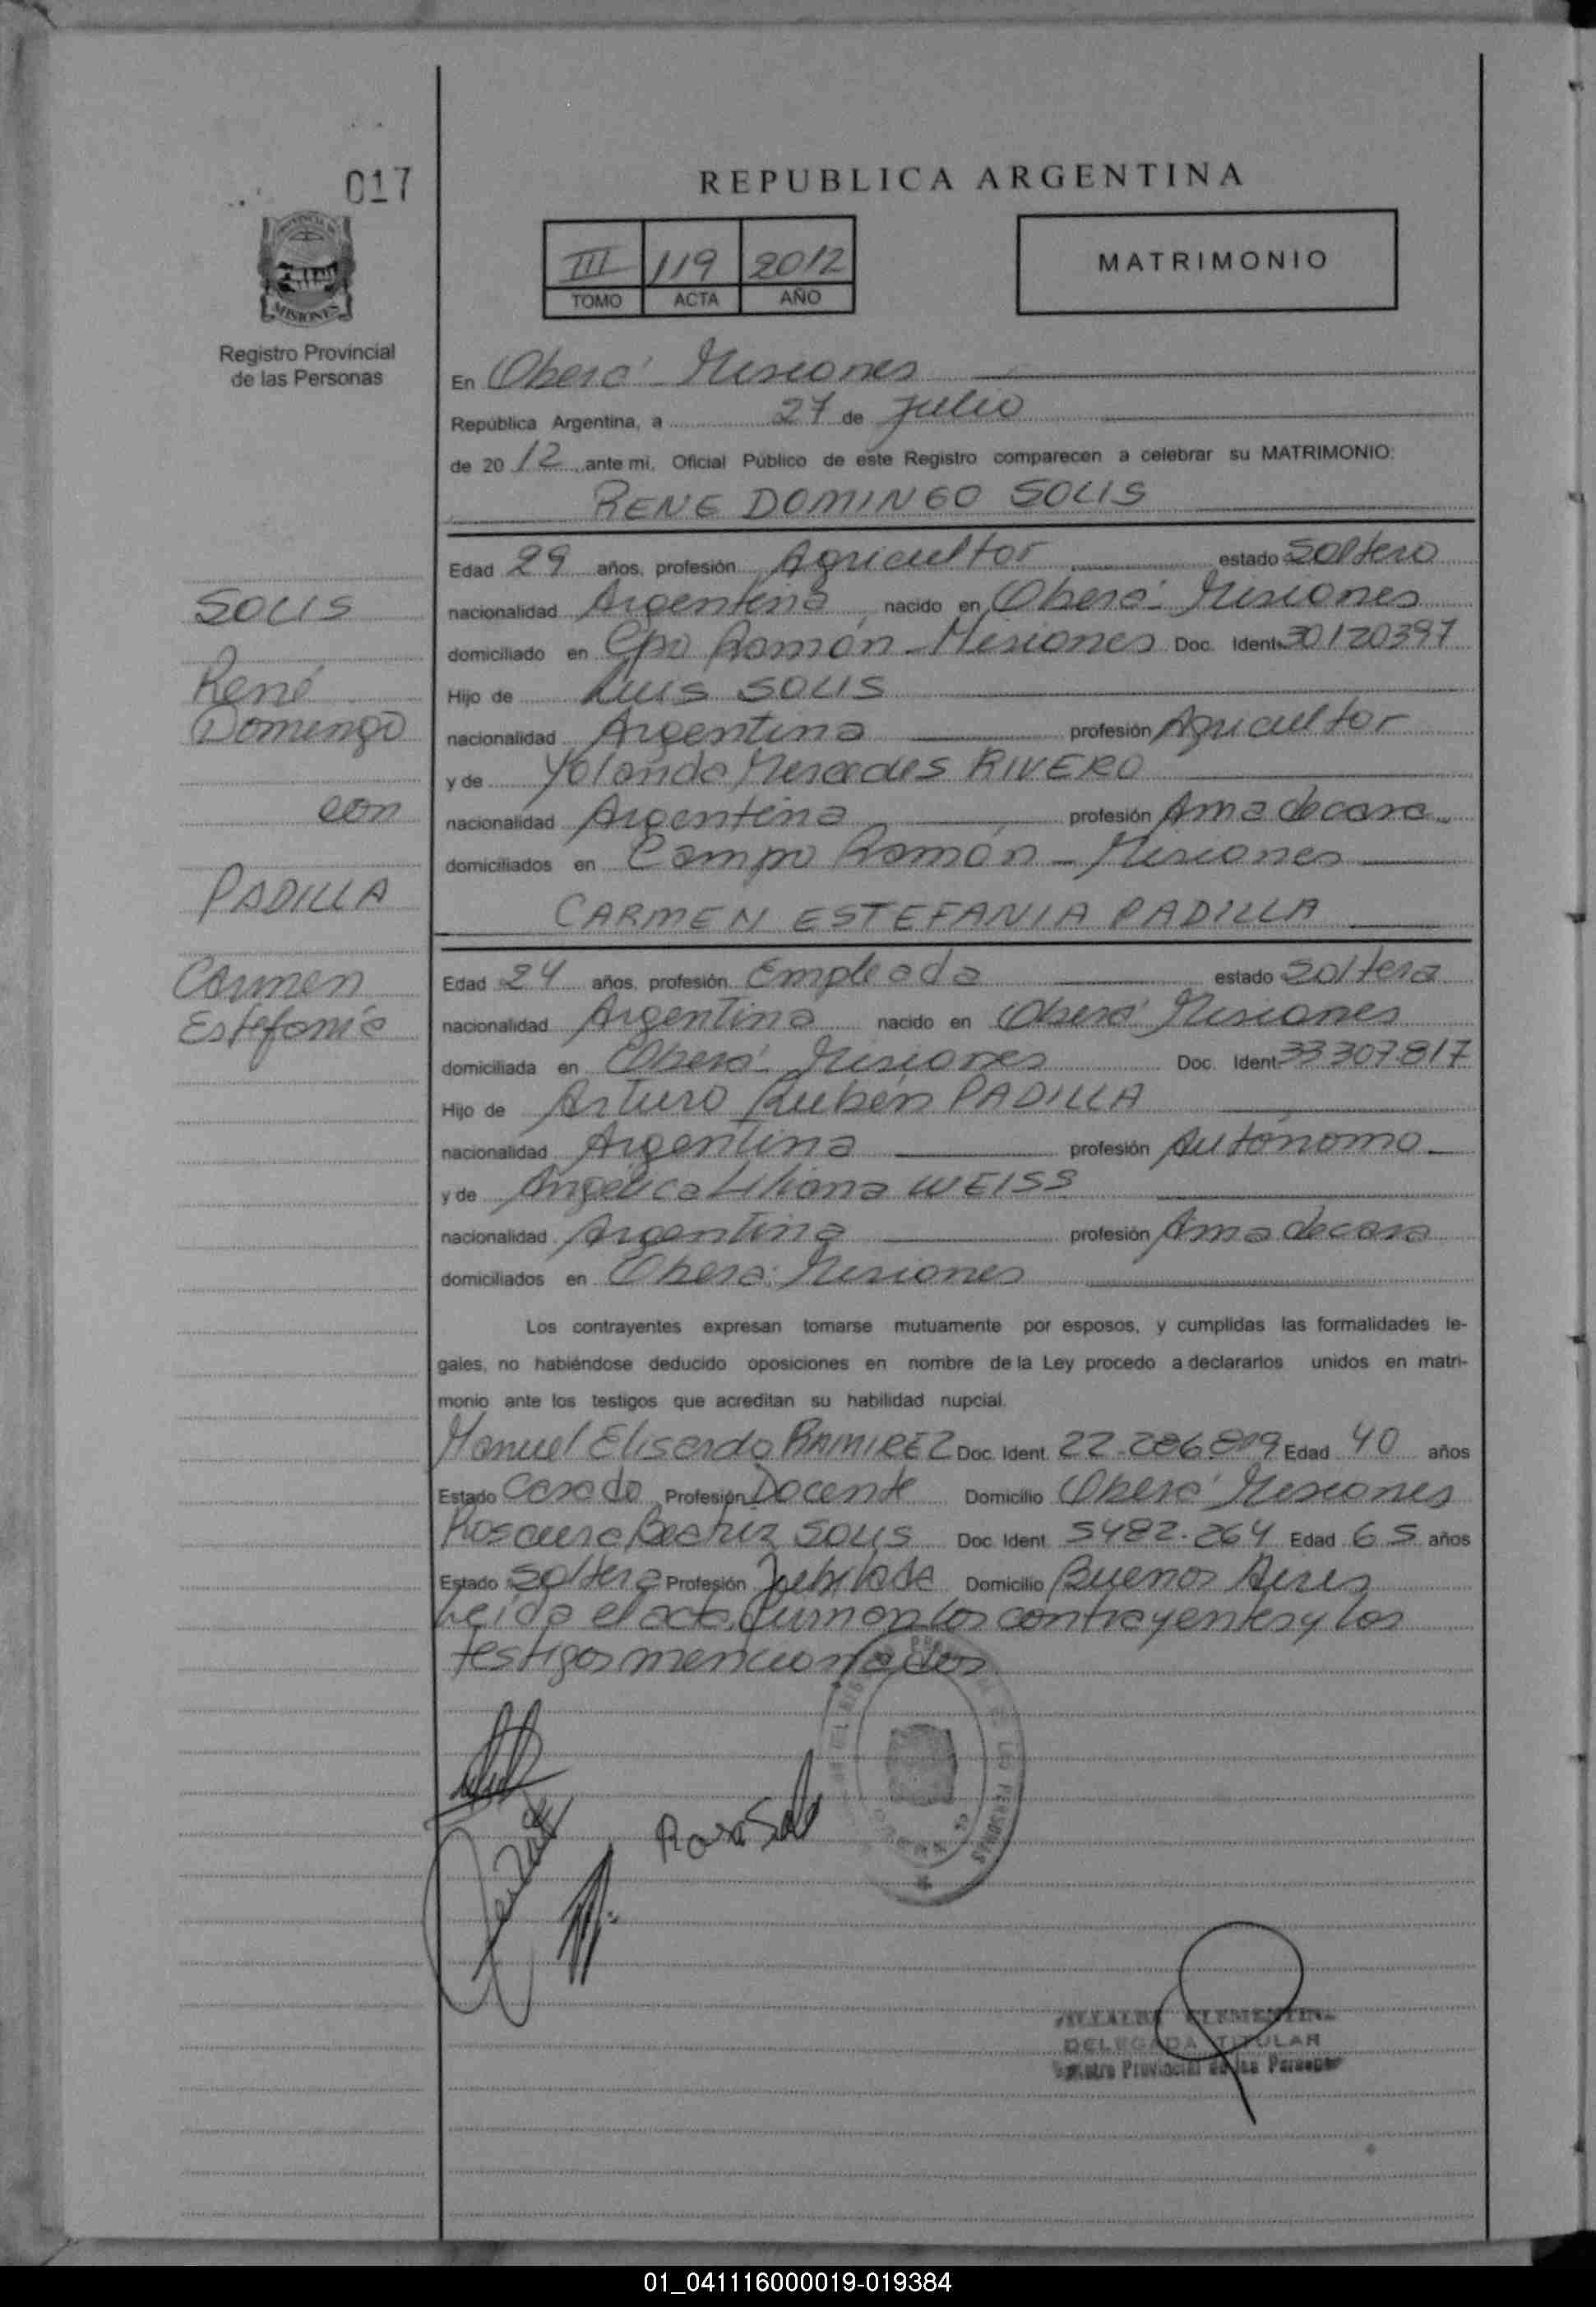 017
REPUBLICA ARGENTINA
III 119 2012
TOMO ACTA AÑO
MATRIMONIO
PROVINCIA DE
MISIONES
Registro Provincial
de las Personas
En Oberá Misiones
República Argentina, a 27 de Julio
de 2012 ante mi, Oficial Público de este Registro comparecen a celebrar su MATRIMONIO:
RENE DOMINGO SOLIS
Edad 29 años, profesión Agricultor estado Soltero
nacionalidad Argentina nacido en Oberá Misiones
domiciliado en Cpo Ramón - Misiones Doc. Ident. 30120397
Hijo de Luis SOLIS
nacionalidad Argentina profesión Agricultor
y de Yolanda Mercedes RIVERO
nacionalidad Argentina profesión Ama de casa
domiciliados en Campo Ramón - Misiones
CARMEN ESTEFANIA PADILLA
SOLIS
René
Domingo
con
PADILLA
Carmen
Estefanía
Edad 24 años, profesión Empleada estado Soltera
nacionalidad Argentina nacido en Oberá Misiones
domiciliada en Oberá Misiones Doc. Ident. 33307.817
Hijo de Arturo Rubén PADILLA
nacionalidad Argentina profesión Autónomo
y de Angélica Liliana WEISS
nacionalidad Argentina profesión Ama de casa
domiciliados en Oberá Misiones
Los contrayentes expresan tomarse mutuamente por esposos, y cumplidas las formalidades le-
gales, no habiéndose deducido oposiciones en nombre de la Ley procedo a declararlos unidos en matri-
monio ante los testigos que acreditan su habilidad nupcial.
Manuel Eliserdo RAMIREZ Doc. Ident. Edad 40 años
Estado Casado Profesión Docente Domicilio Oberá Misiones
Rosaura Beatriz SOLIS Doc. Ident. 5482.264 Edad 65 años
Estado Soltera Profesión Jubilada Domicilio Buenos Aires
Leída el acta, firman los contrayentes y los
testigos mencionados
Rosa
LAS PERSONAS
CLEMENTINA
DELEGADA TITULAR
Provincial de las Personas
01_041116000019-019384